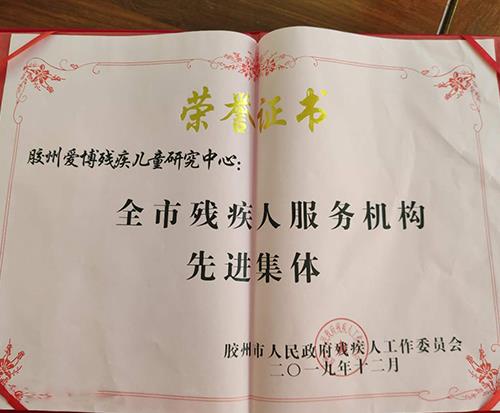 荣誉证书
胶州爱博残疾儿童研究中心:
全市残疾人服务机构
先进集体
胶州市人民政府残疾人工作委员会
二〇一九年十二月